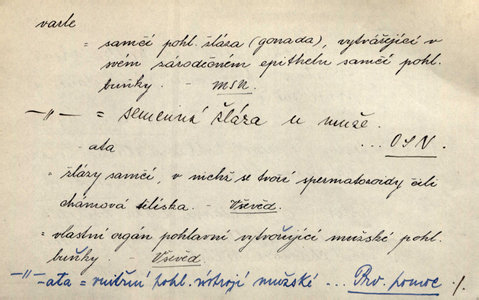 varle
= samčí pohl. žláza (gonada), vytvářející v
svém zárodečném epithelu samčí pohl.
buňky. - MSN.
—„— = semenná žláza u muže.
-ata ... OSN.
= žlázy samčí, v nichž se tvoří spermatozoidy čili
chámová tělíska. - Vševěd.
= vlastní orgán pohlavní vytvořující mužské pohl.
buňky. - Vševěd
—„— -ata = vnitřní pohl. ústrojí mužské ... Prv. pomoc ./.